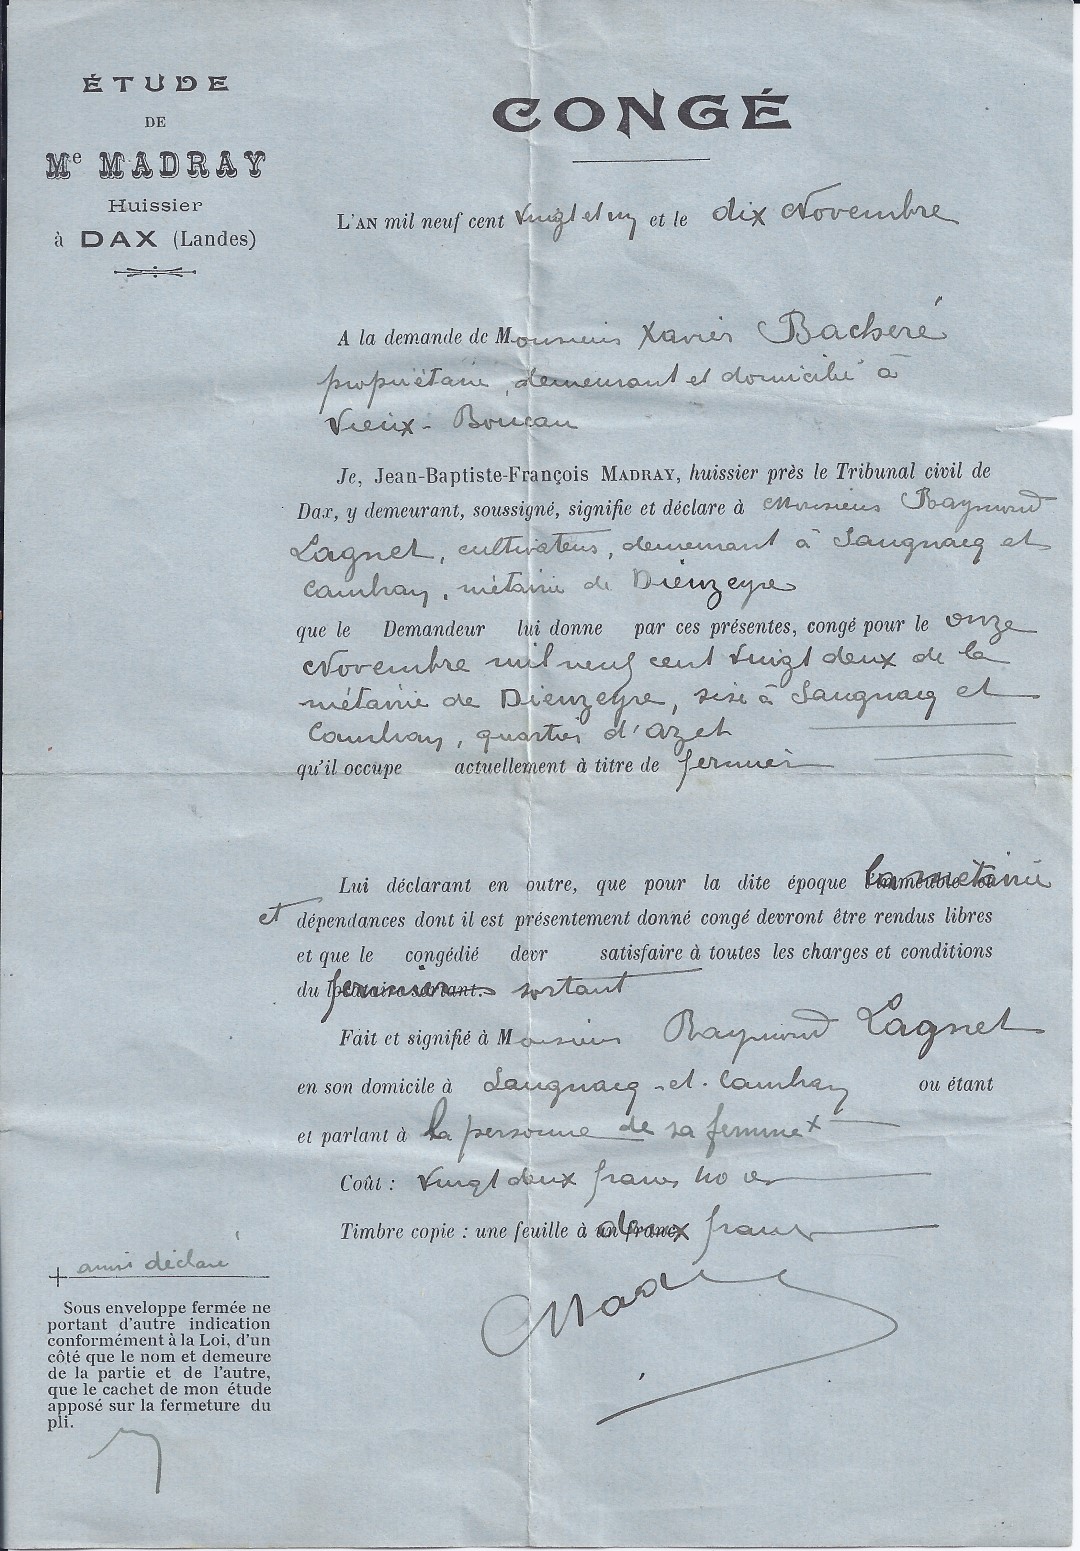 ÉTUDE
DE
Me MADRAY
Huissier
à DAX (Landes)
CONGÉ
L'AN mil neuf cent vingt et un et le dix Novembre
A la demande de Monsieur Xavier Bacheré
propriétaire, demeurant et domicilié à
Vieux-Boucau
Je, Jean-Baptiste-François MADRAY, huissier près le Tribunal civil de
Dax, y demeurant, soussigné, signifie et déclare à Monsieur Raymond
Lagnet, cultivateur, demeurant à Saugnacq et
Cambran, métairie de Dienzeyre
que le Demandeur lui donne par ces présentes, congé pour le onze
Novembre mil neuf cent vingt deux de la
métairie de Dienzeyre, sise à Saugnacq et
Cambran, quartier d'Azet
qu'il occupe actuellement à titre de fermier
Lui déclarant en outre, que pour la dite époque la métairie
et dépendances dont il est présentement donné congé devront être rendus libres
et que le congédié devr satisfaire à toutes les charges et conditions
du fermier sortant
Fait et signifié à Monsieur Raymond Lagnet
en son domicile à Saugnacq-et-Cambran ou étant
et parlant à la personne de sa femme x
Coût : vingt deux francs 40 cs
Timbre copie : une feuille à deux francs
Madray
+ ainsi déclaré
Sous enveloppe fermée ne
portant d'autre indication
conformément à la Loi, d'un
côté que le nom et demeure
de la partie et de l'autre,
que le cachet de mon étude
apposé sur la fermeture du
pli.